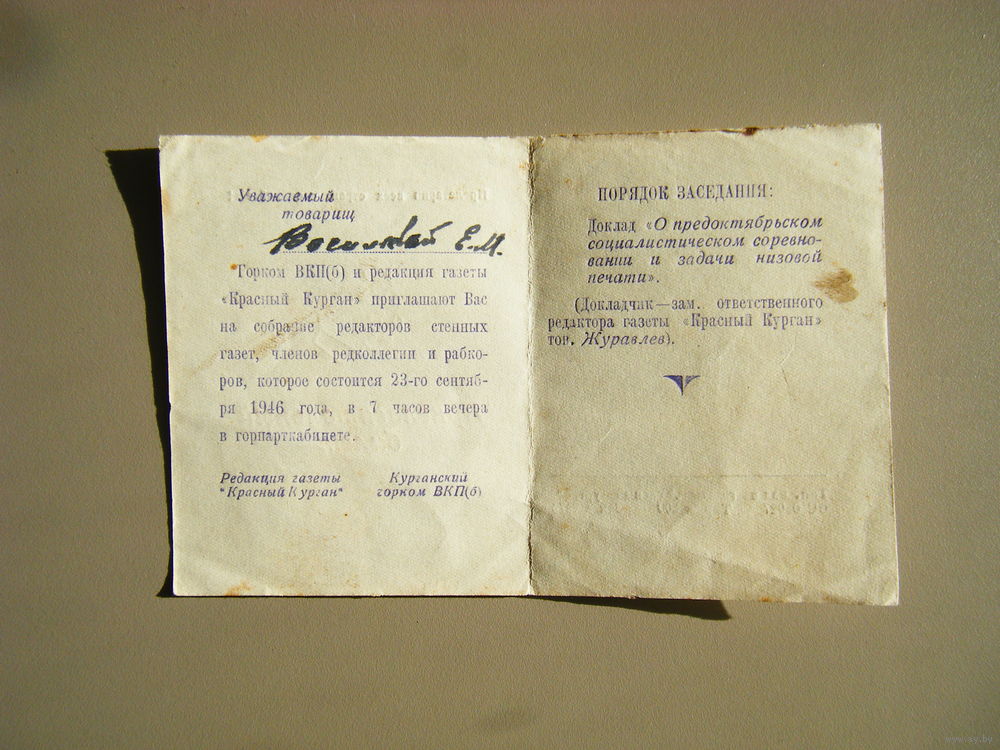 Уважаемый
товарищ
Е.И.
Горком ВКП(б) и редакция газеты
«Красный Курган» приглашают Вас
на собрание редакторов стенных
газет, членов редколлегии и рабко-
ров, которое состоится 23-го сентяб-
ря 1946 года, в 7 часов вечера
в горпарткабинете.
Редакция газеты
"Красный Курган"
Курганский
горком ВКП(б)
ПОРЯДОК ЗАСЕДАНИЯ:
Доклад «О предоктябрьском
социалистическом соревно-
вании и задачи низовой
печати».
(Докладчик—зам. ответственного
редактора газеты «Красный Курган»
тов. Журавлев).
www.ay.by